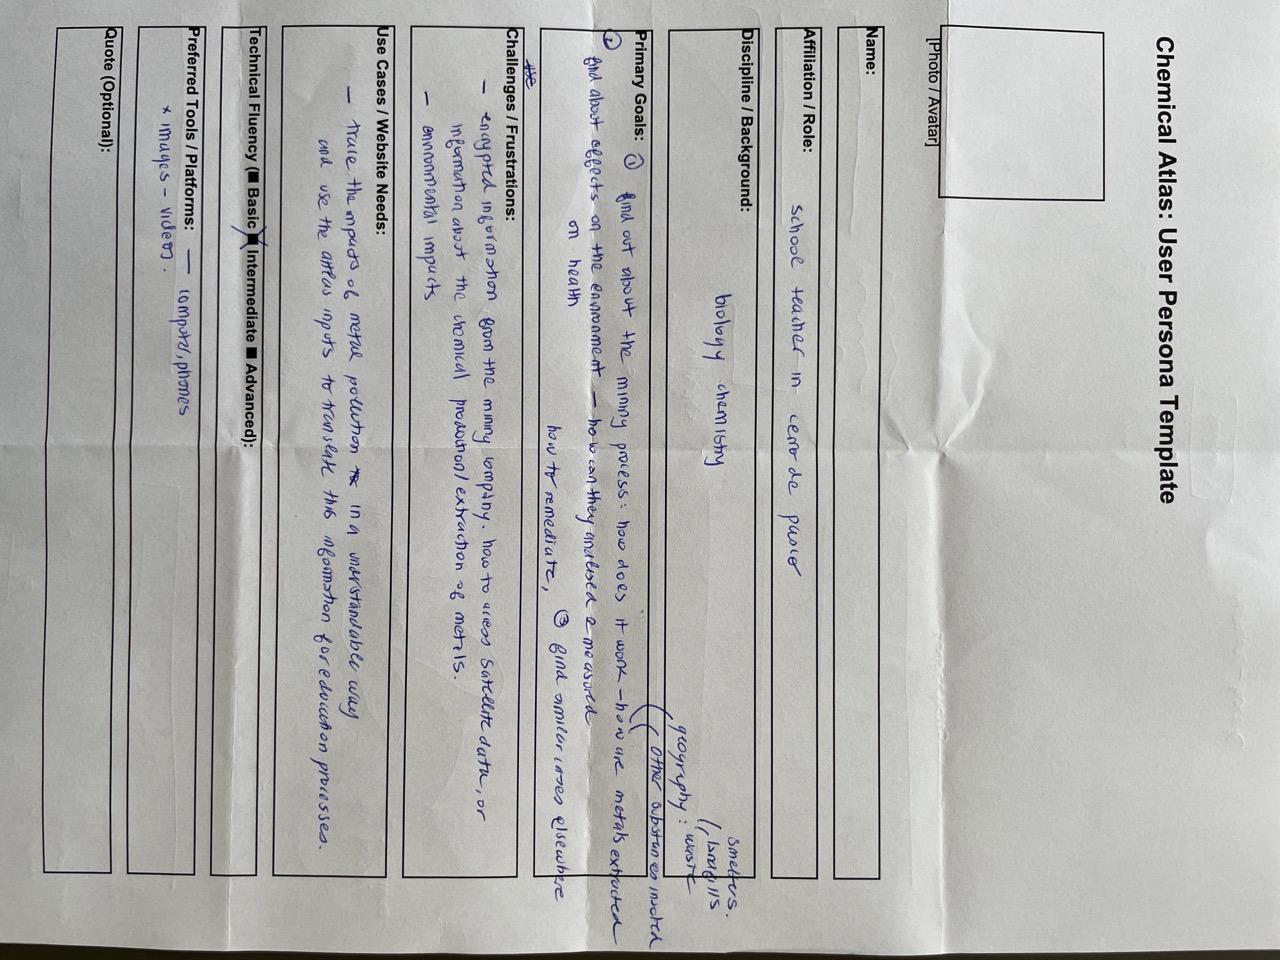 Chemical Atlas: User Persona Template
[Photo / Avatar]
Name:
Affiliation / Role:
school teacher in cerro de pasco
Discipline / Background:
biology chemistry
smelters.
landfills
geography: waste
other substances involved
Primary Goals: ① find out about the mining process: how does it work – how are metals extracted
② find about effects on the environment – how can they analised & measured
on health
how to remediate, ③ find similar cases elsewhere
use
Challenges / Frustrations:
– encrypted information from the mining company. how to access satellite data, or
information about the chemical production/extraction of metals.
– environmental impacts
Use Cases / Website Needs:
– trace the impacts of metal pollution in a understandable way
and use the attlas inputs to translate this information for education processes.
Technical Fluency (■ Basic ■ Intermediate ■ Advanced):
Preferred Tools / Platforms: – computer, phones
* images – videos.
Quote (Optional):